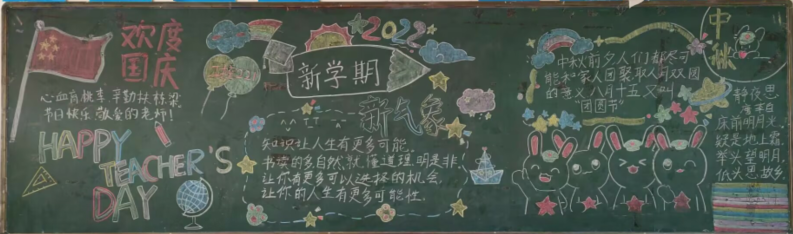 欢度
国庆
心血育桃李 辛勤扶栋梁
节日快乐,敬爱的老师!
HAPPY
TEACHER'S
DAY
2022
新学期
新气象
知识让人生有更多可能。
书读的多自然就懂道理,明是非!
让你有更多可以选择的机会,
让你的人生有更多可能性。
中秋
中秋前夕人们都尽可
能和家人团聚取人月双团
的意义八月十五又叫
“团圆节”
静夜思
床前明月光
疑是地上霜
举头望明月
低头思故乡